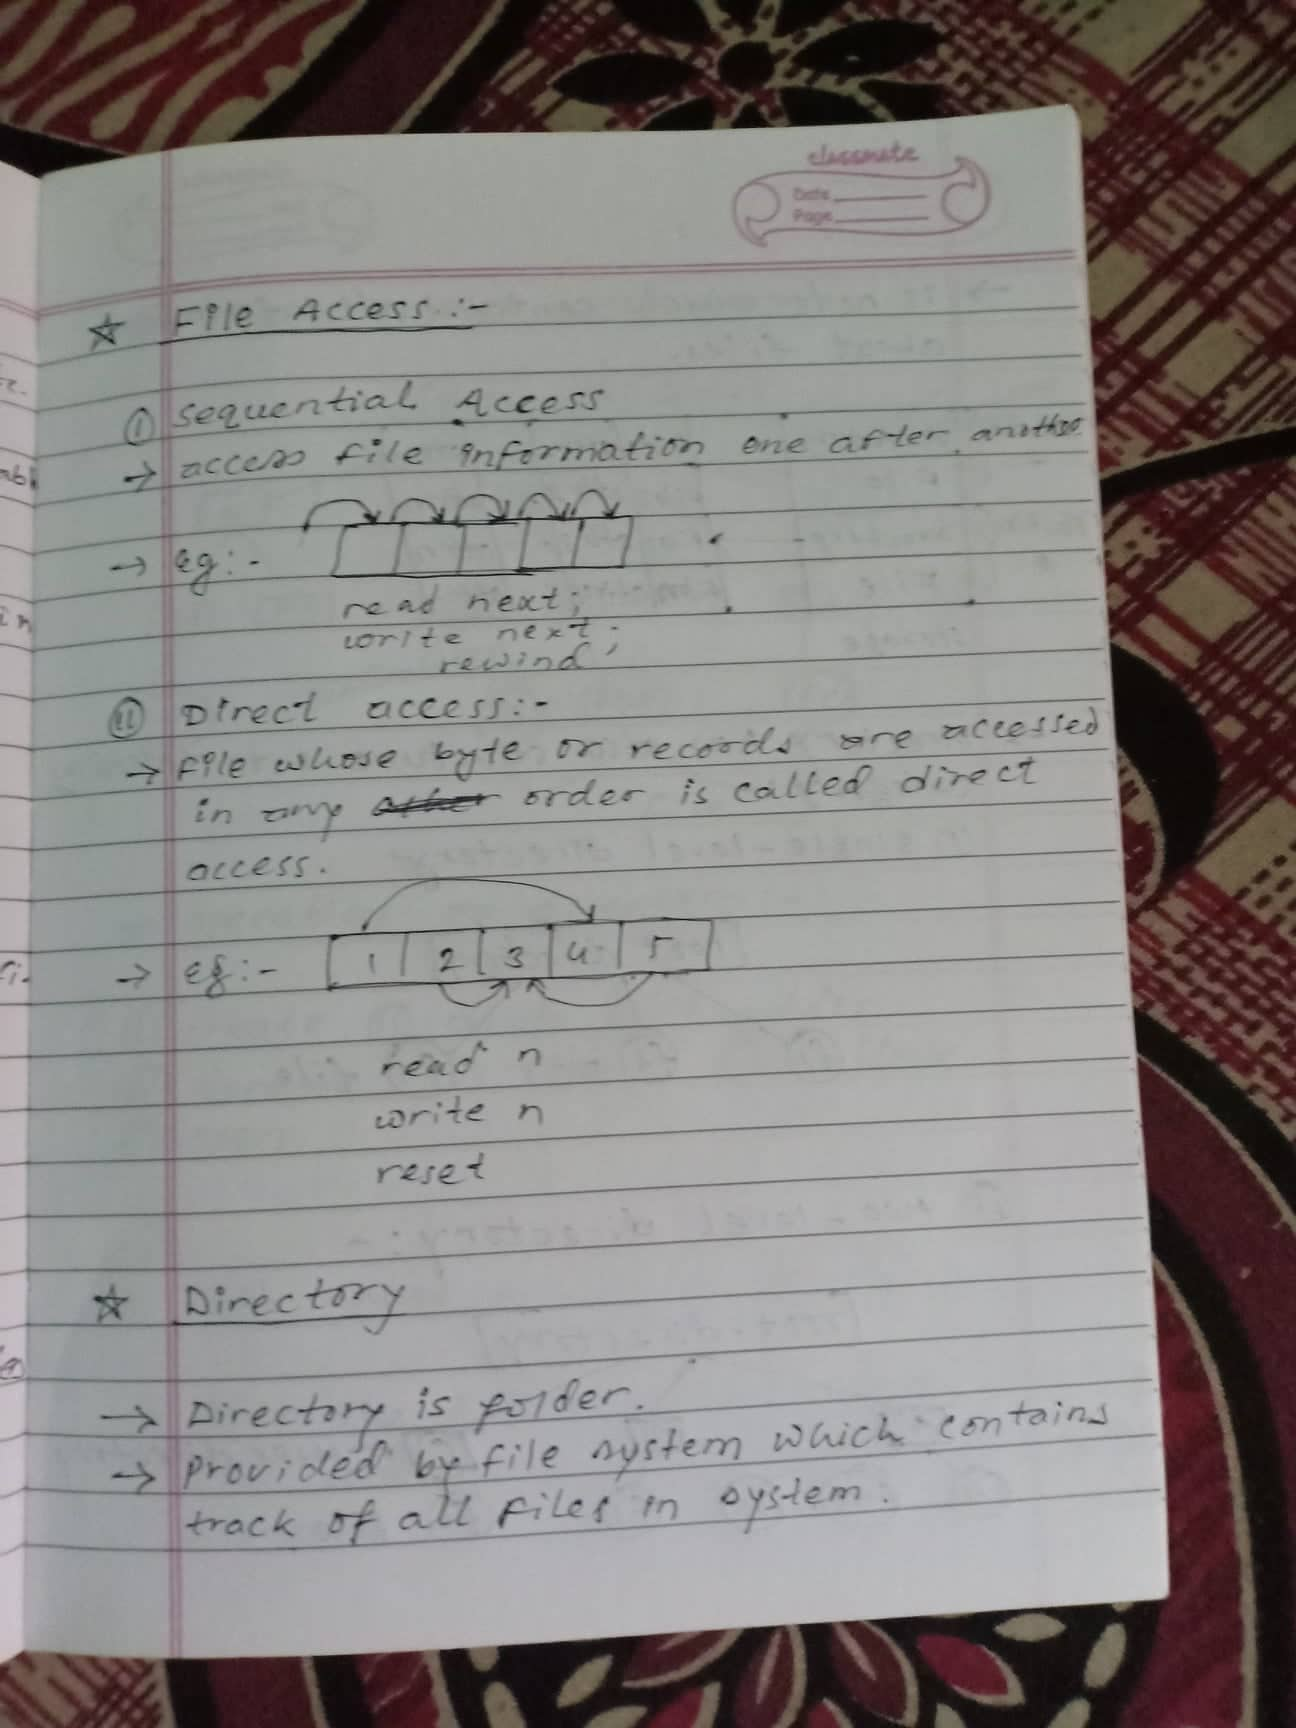 classmate
Date
Page
☆ File Access :-
① sequential Access
→ access file information one after another
→ eg:-
read next;
write next;
rewind
② Direct access:-
→ File whose byte or records are accessed
in any order is called direct
access.
→ eg:- 1 2 3 4 5
read n
write n
reset
☆ Directory
→ Directory is folder.
→ provided by file system which contains
track of all files in system.